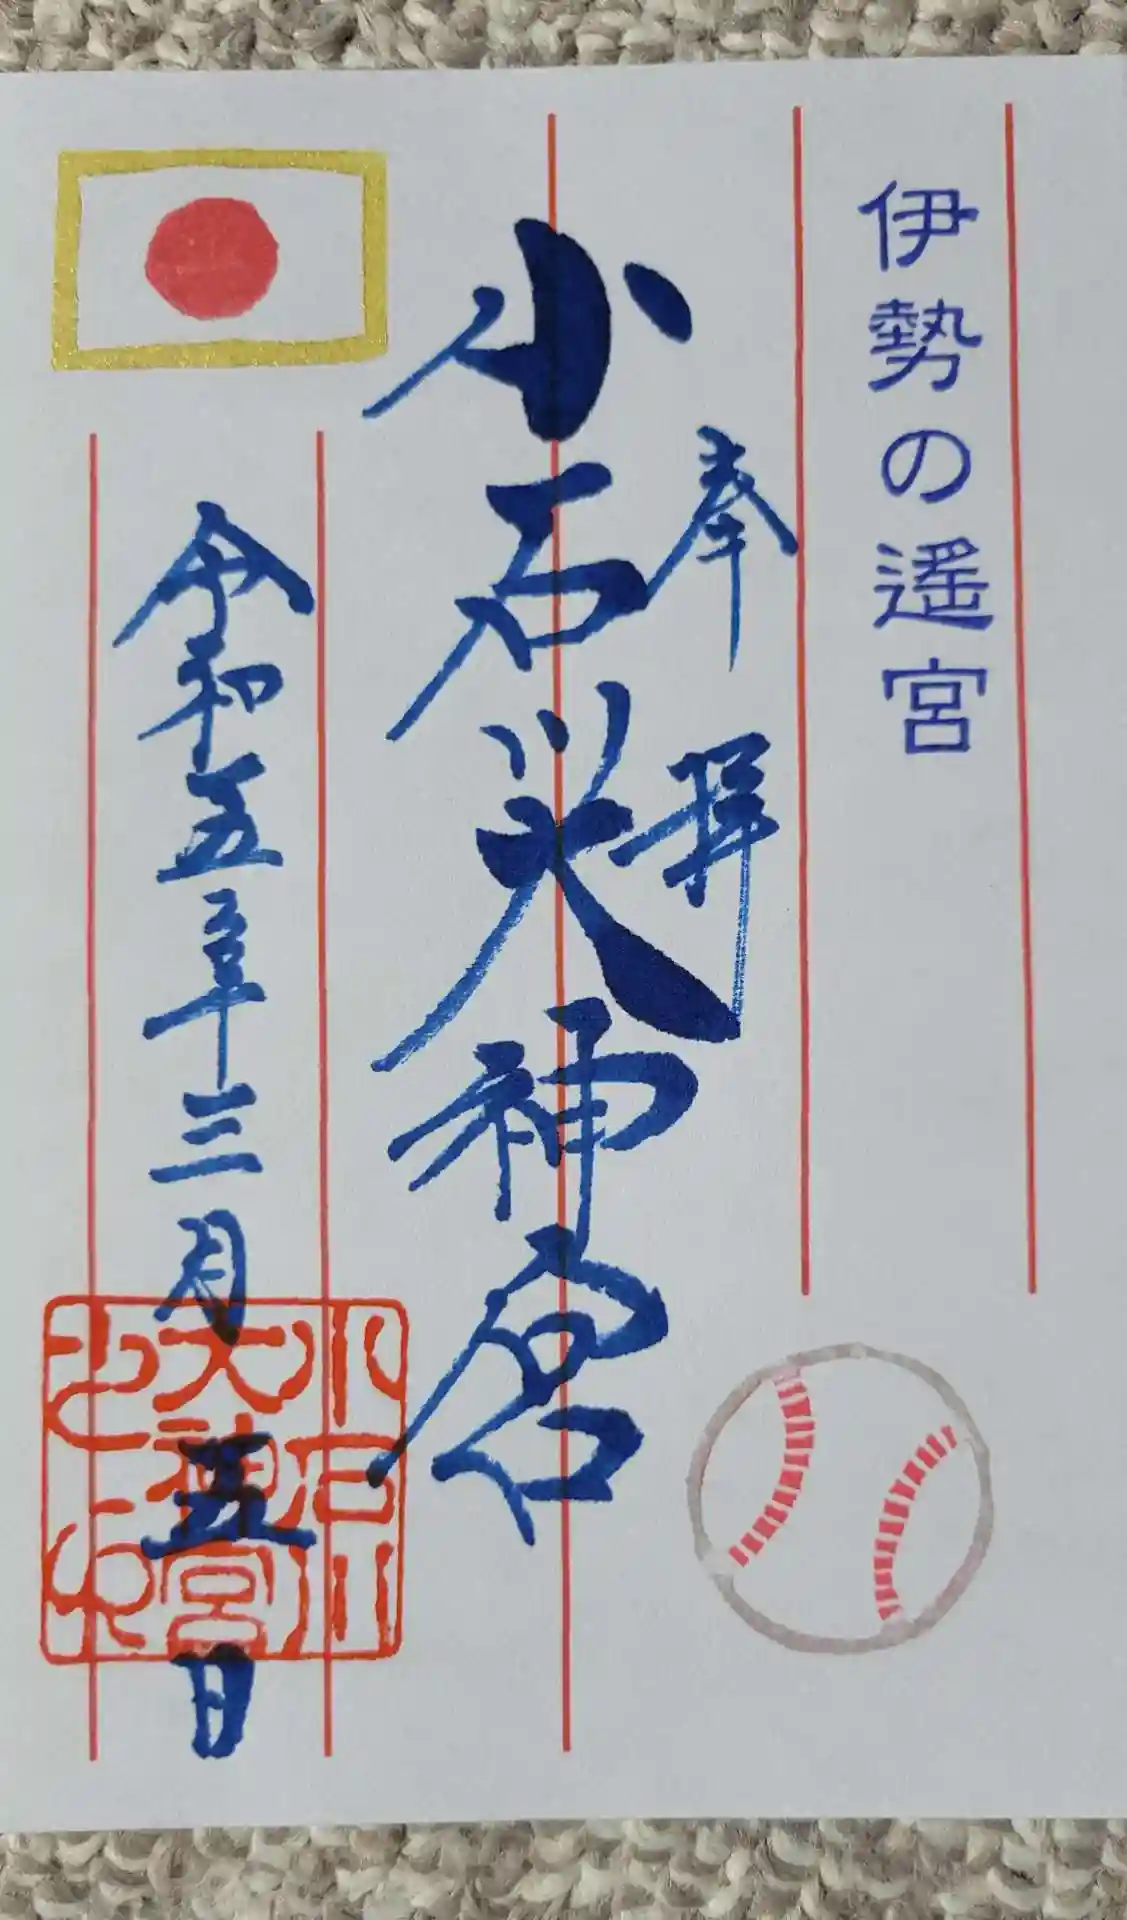 伊勢の遥宮
奉拝
小石川大神宮
令和五年三月五日
小石川
大神宮